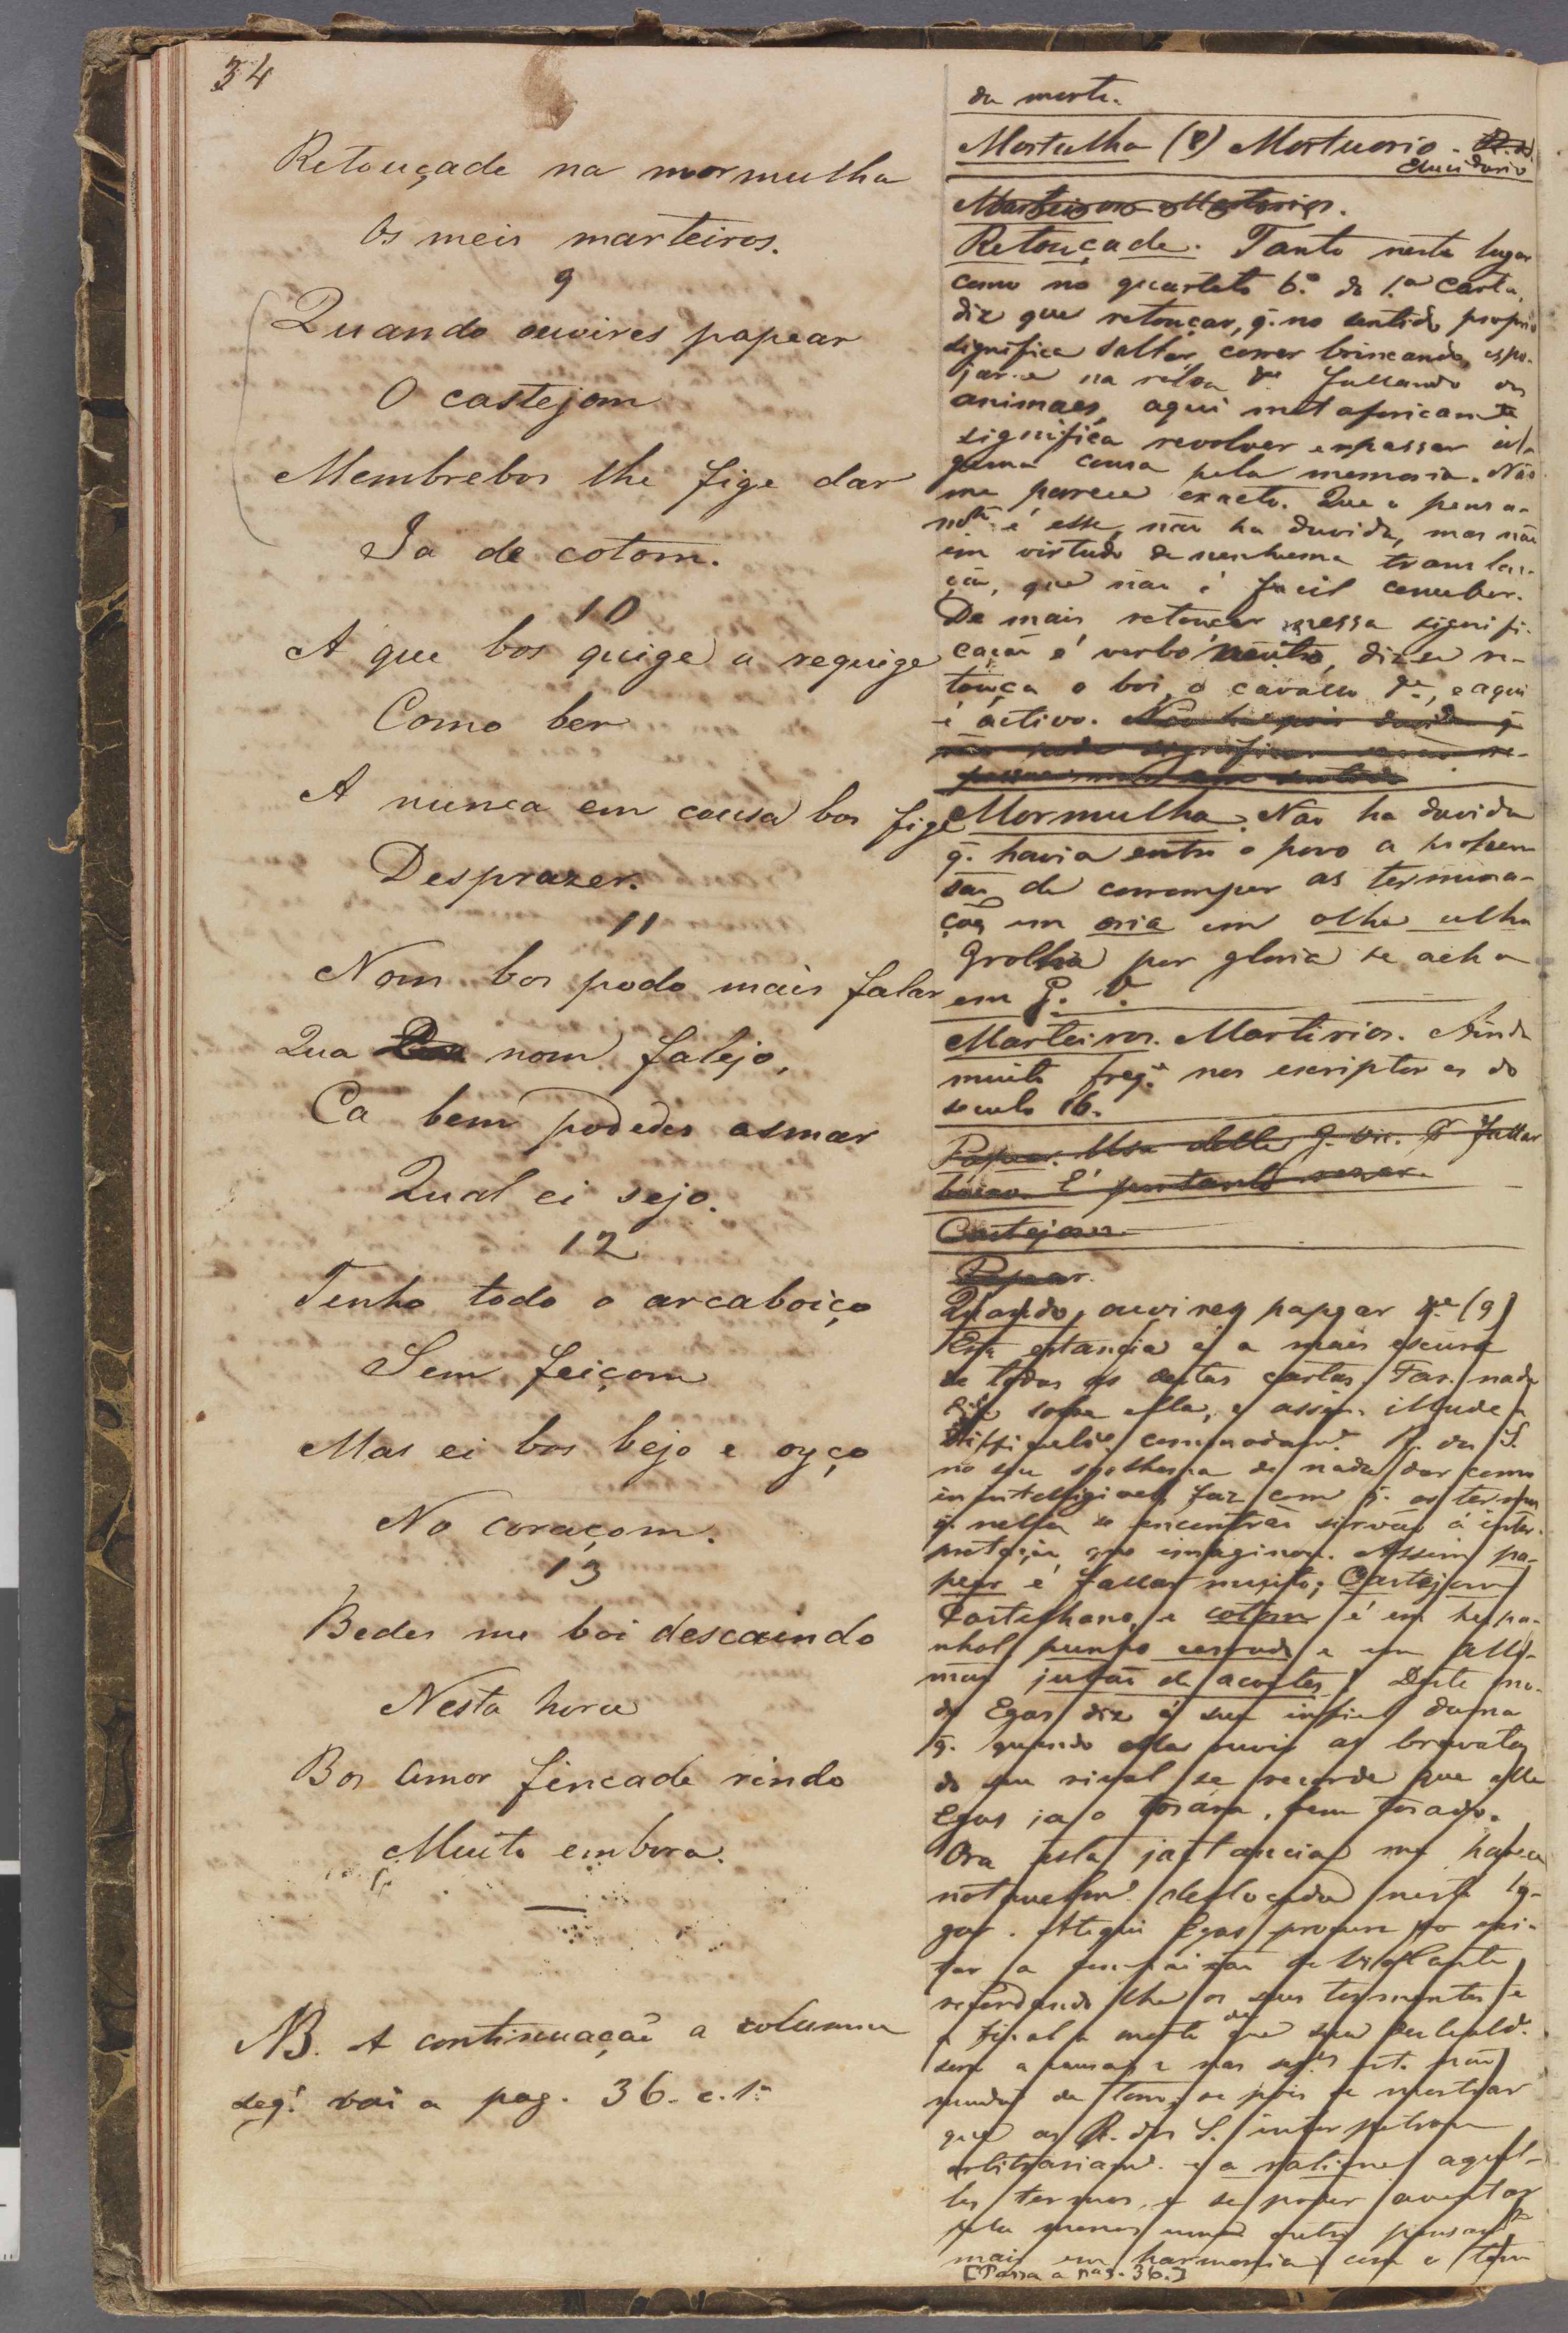 34
Retouçade na mormulha
Os meis marteiros.
9
Quando ouvires papear
O castejom
Membrebos lhe fige dar
Ja de cotom.
10
A que bos quige a requige
Como ber
A nunca em cousa bos fige
Desprazer.
11
Nom bos podo mais falar
Qua nom falejo,
Ca bem podedes asmar
Qual ei sejo.
12
Tenho todo o arcaboiço
Sem feiçom
Mas ei bos bejo e oyço
No coraçom.
13
Bedes me boi descaindo
Nesta hora
Bos amor fincade rindo
Muito embora.
NB. A continuaçaõ a columna
seg.e vai a pag. 36. c. 1a
da morte.
Mortulha (?) Mortuorio.
Elucidario
Marteiros Martirios.
Retouçade. Tanto neste lugar
como no quarteto 6.o da 1.a Carta,
diz que retouçar, q. no sentido proprio
significa saltar, correr brincando, espo-
jar-se na relva &c fallando de
animaes, aqui metaforicam.te
significa revolver e repassar al-
guma cousa pela memoria. Não
me parece exacto. Que o pensa-
m.to é esse, não ha duvida, mas não
em virtude de nenhuma transla-
çaõ, que não é facil conceber.
De mais retouçar nessa signifi-
caçaõ é verbo neutro, diz-se re-
touça o boi, o cavallo &c, e aqui
é activo. Não ha pois duvida q.
não pode significar
Mormulha. Não ha duvida
q. havia entre o povo a propen-
saõ de corromper as termina-
ções em oria em olha ulha
Grolha por gloria se acha
em G. V.
Marteiros. Martirios. Ainda
muito freq.te nos escriptores do
seculo 16.
Papear. Usa delle G. Vic. P. fallar
baixo. É portanto rezar.
Castejom
Papear.
Quando ouvires papear &c (9)
Esta estancia é a mais escura
de todas as outas cartas. Far. nada
diz sobre ella, e assim illude a
difficuld.e commodam.te R. dos S.
no seu systhema de nada dar como
inintelligivel, faz com q. os termos
q. nella se encontraõ sirvaõ á inter-
pretaçaõ que imaginou. Assim pa-
pear é fallar muito; Castejom
Castelhano, e cotom é em hespa-
nhol punho cerrado e em alle-
maõ jubaõ de acoutes. Deste mo-
do Egas diz á sua infiel dama
q. quando ella ouvir as bravatas
do seu rival se recorde que elle
Egas ja o tosára, bem tosado.
Ora esta jactancia me parece
notavelm.te deslocada neste lu-
gar. Atequi Egas procura
a compaixaõ de Violante
recordando lhe os seus tormentos e
a final a morte de que sua
será a causa, e nas seg.es est. não
muda de tom, se pois se mostrar
que as R. dos S. interpretou
arbitrariam.te e a ratione aquel-
les termos, e se poder aventar
pelo menos um outro pensam.to
mais em harmonia com o tom
[Passa a pag. 36.]